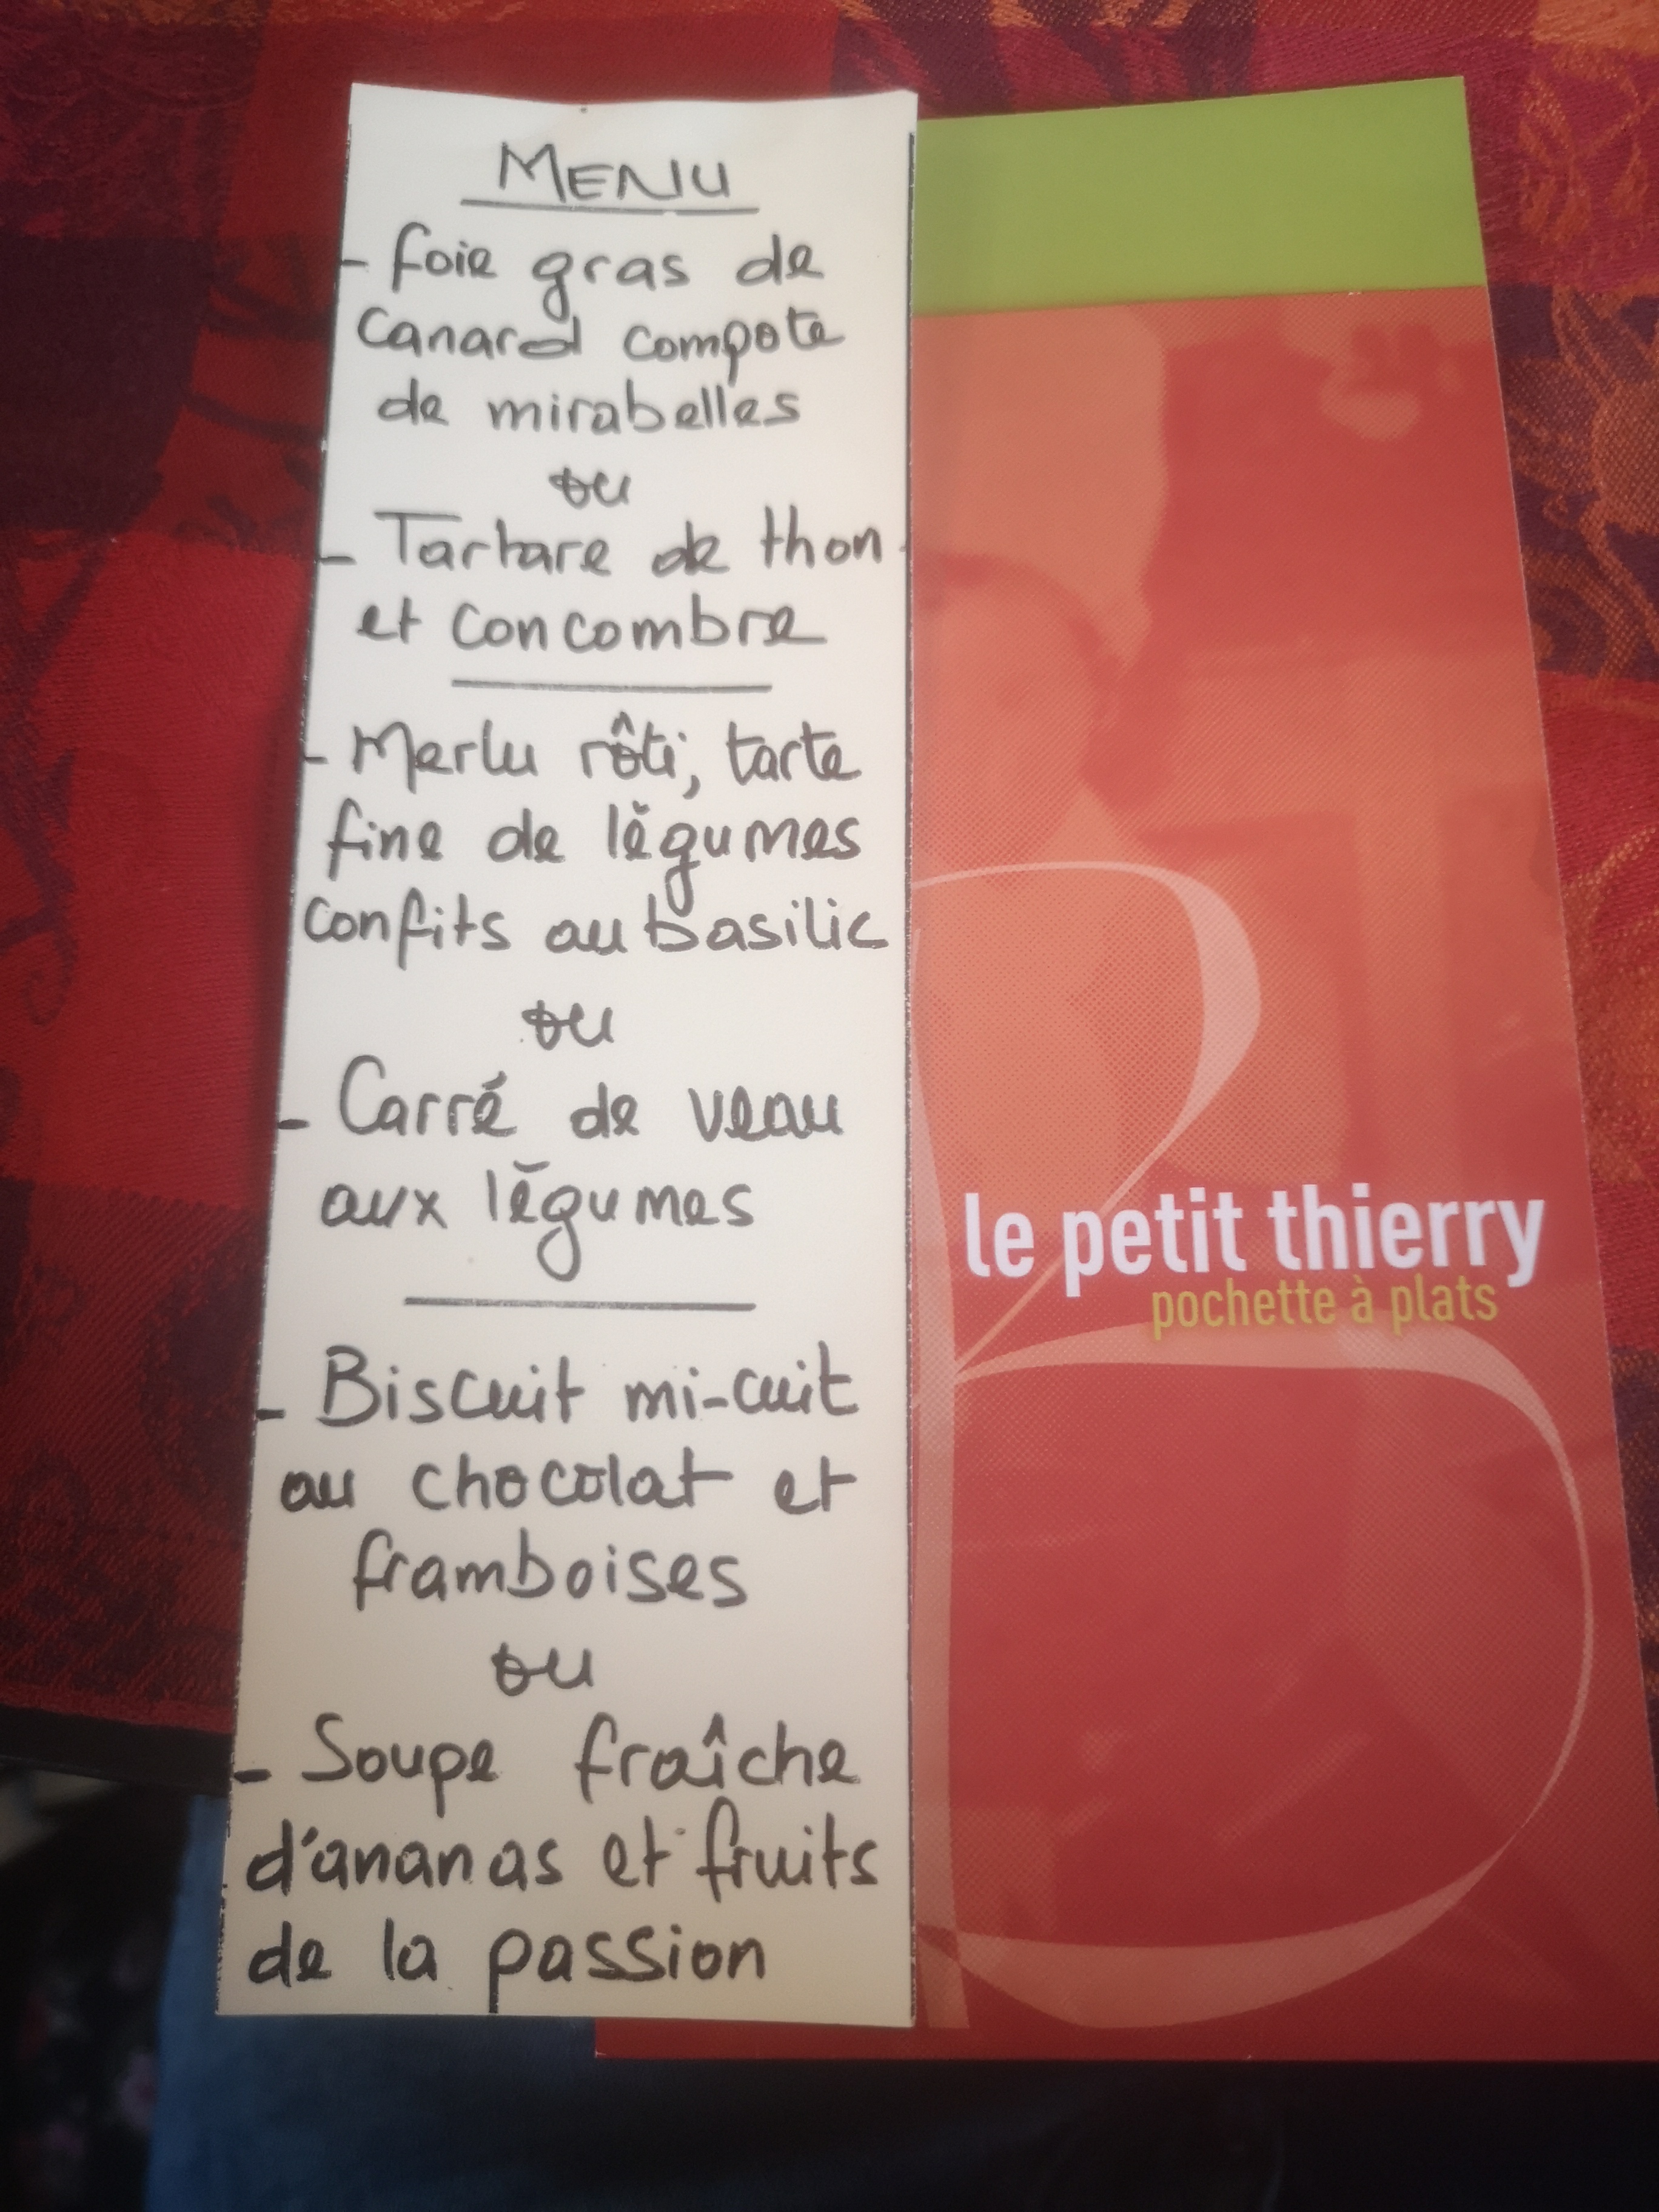 MENU
- foie gras de
canard compote
de mirabelles
ou
- Tartare de thon
et concombre
- Merlu rôti, tarte
fine de légumes
confits au basilic
ou
- Carré de veau
aux légumes
- Biscuit mi-cuit
au chocolat et
framboises
ou
- Soupe fraîche
d'ananas et fruits
de la passion
le petit thierry
pochette à plats